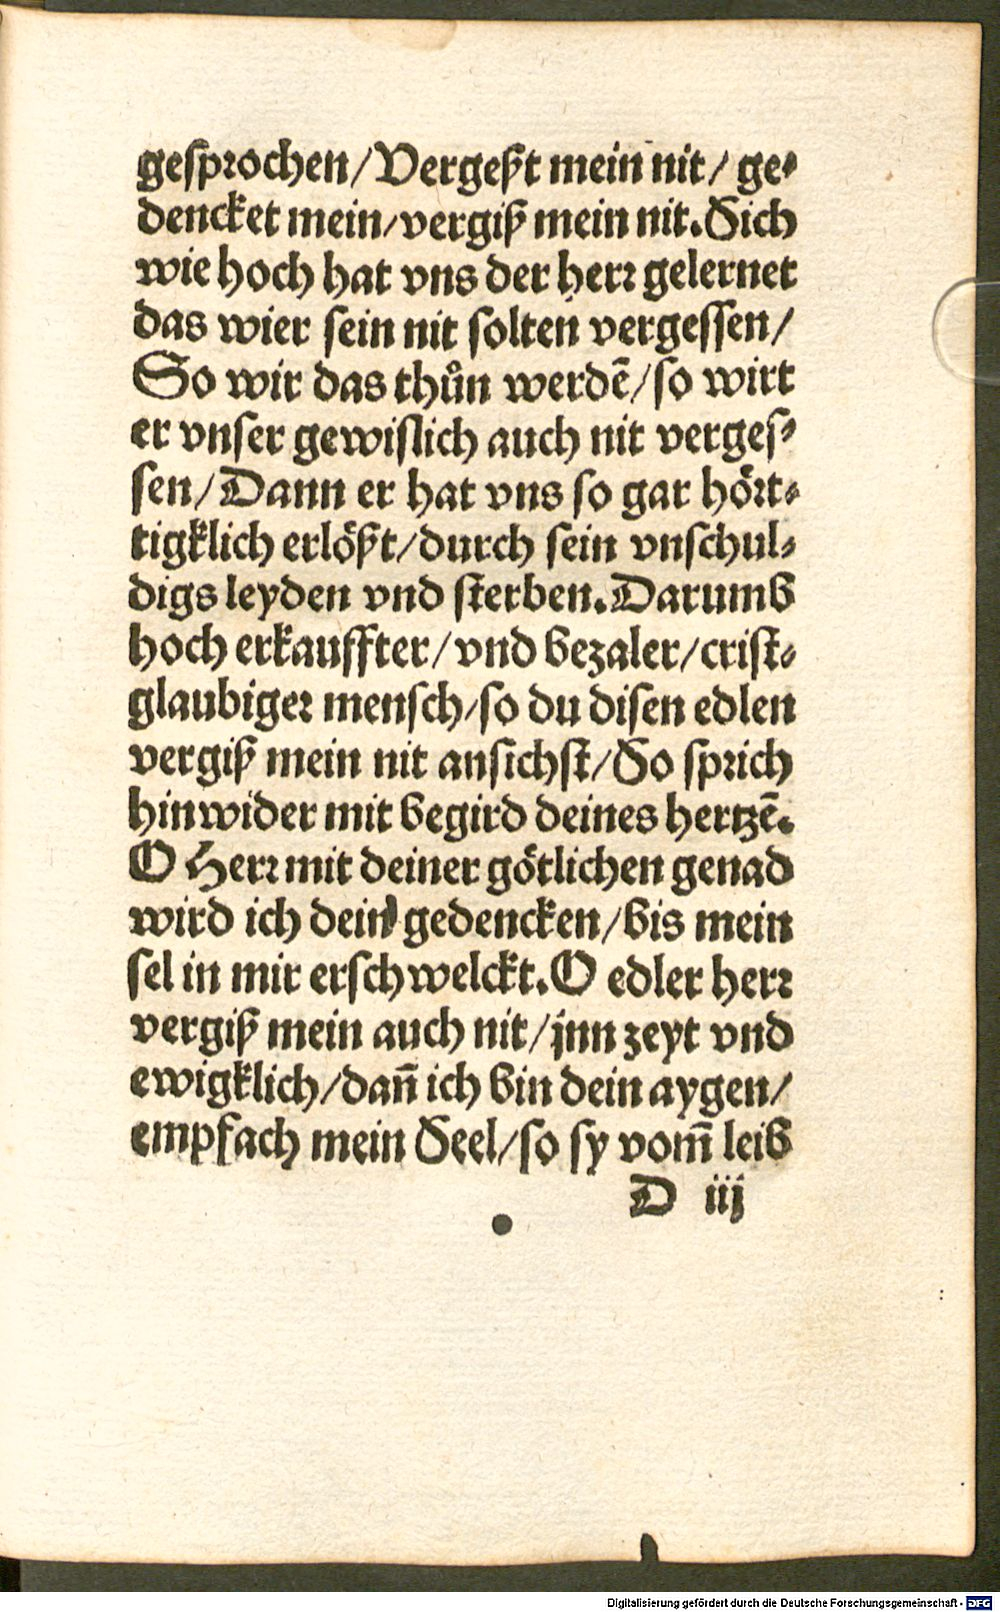 gesprochen/Vergeßt mein nit/ ge⸗
dencket mein/vergiß mein nit. Sich
wie hoch hat vns der herr gelernet
das wier sein nit solten vergessen/
So wir das thůn werdē/so wirt
er vnser gewislich auch nit verges⸗
sen/Dann er hat vns so gar hört⸗
tigklich erlößt/durch sein vnschul⸗
digs leyden vnd sterben. Darumb
hoch erkauffter/vnd bezaler/crist⸗
glaubiger mensch/so du disen edlen
vergiß mein nit ansichst/So sprich
hinwider mit begird deines hertzē.
O Herr mit deiner götlichen genad
wird ich dein gedencken/bis mein
sel in mir erschwelckt. O edler herr
vergiß mein auch nit/jnn zeyt vnd
ewigklich/dañ ich bin dein aygen/
empfach mein Seel/so sy vom̄ leib
D iij
Digitalisierung gefördert durch die Deutsche Forschungsgemeinschaft - DFG